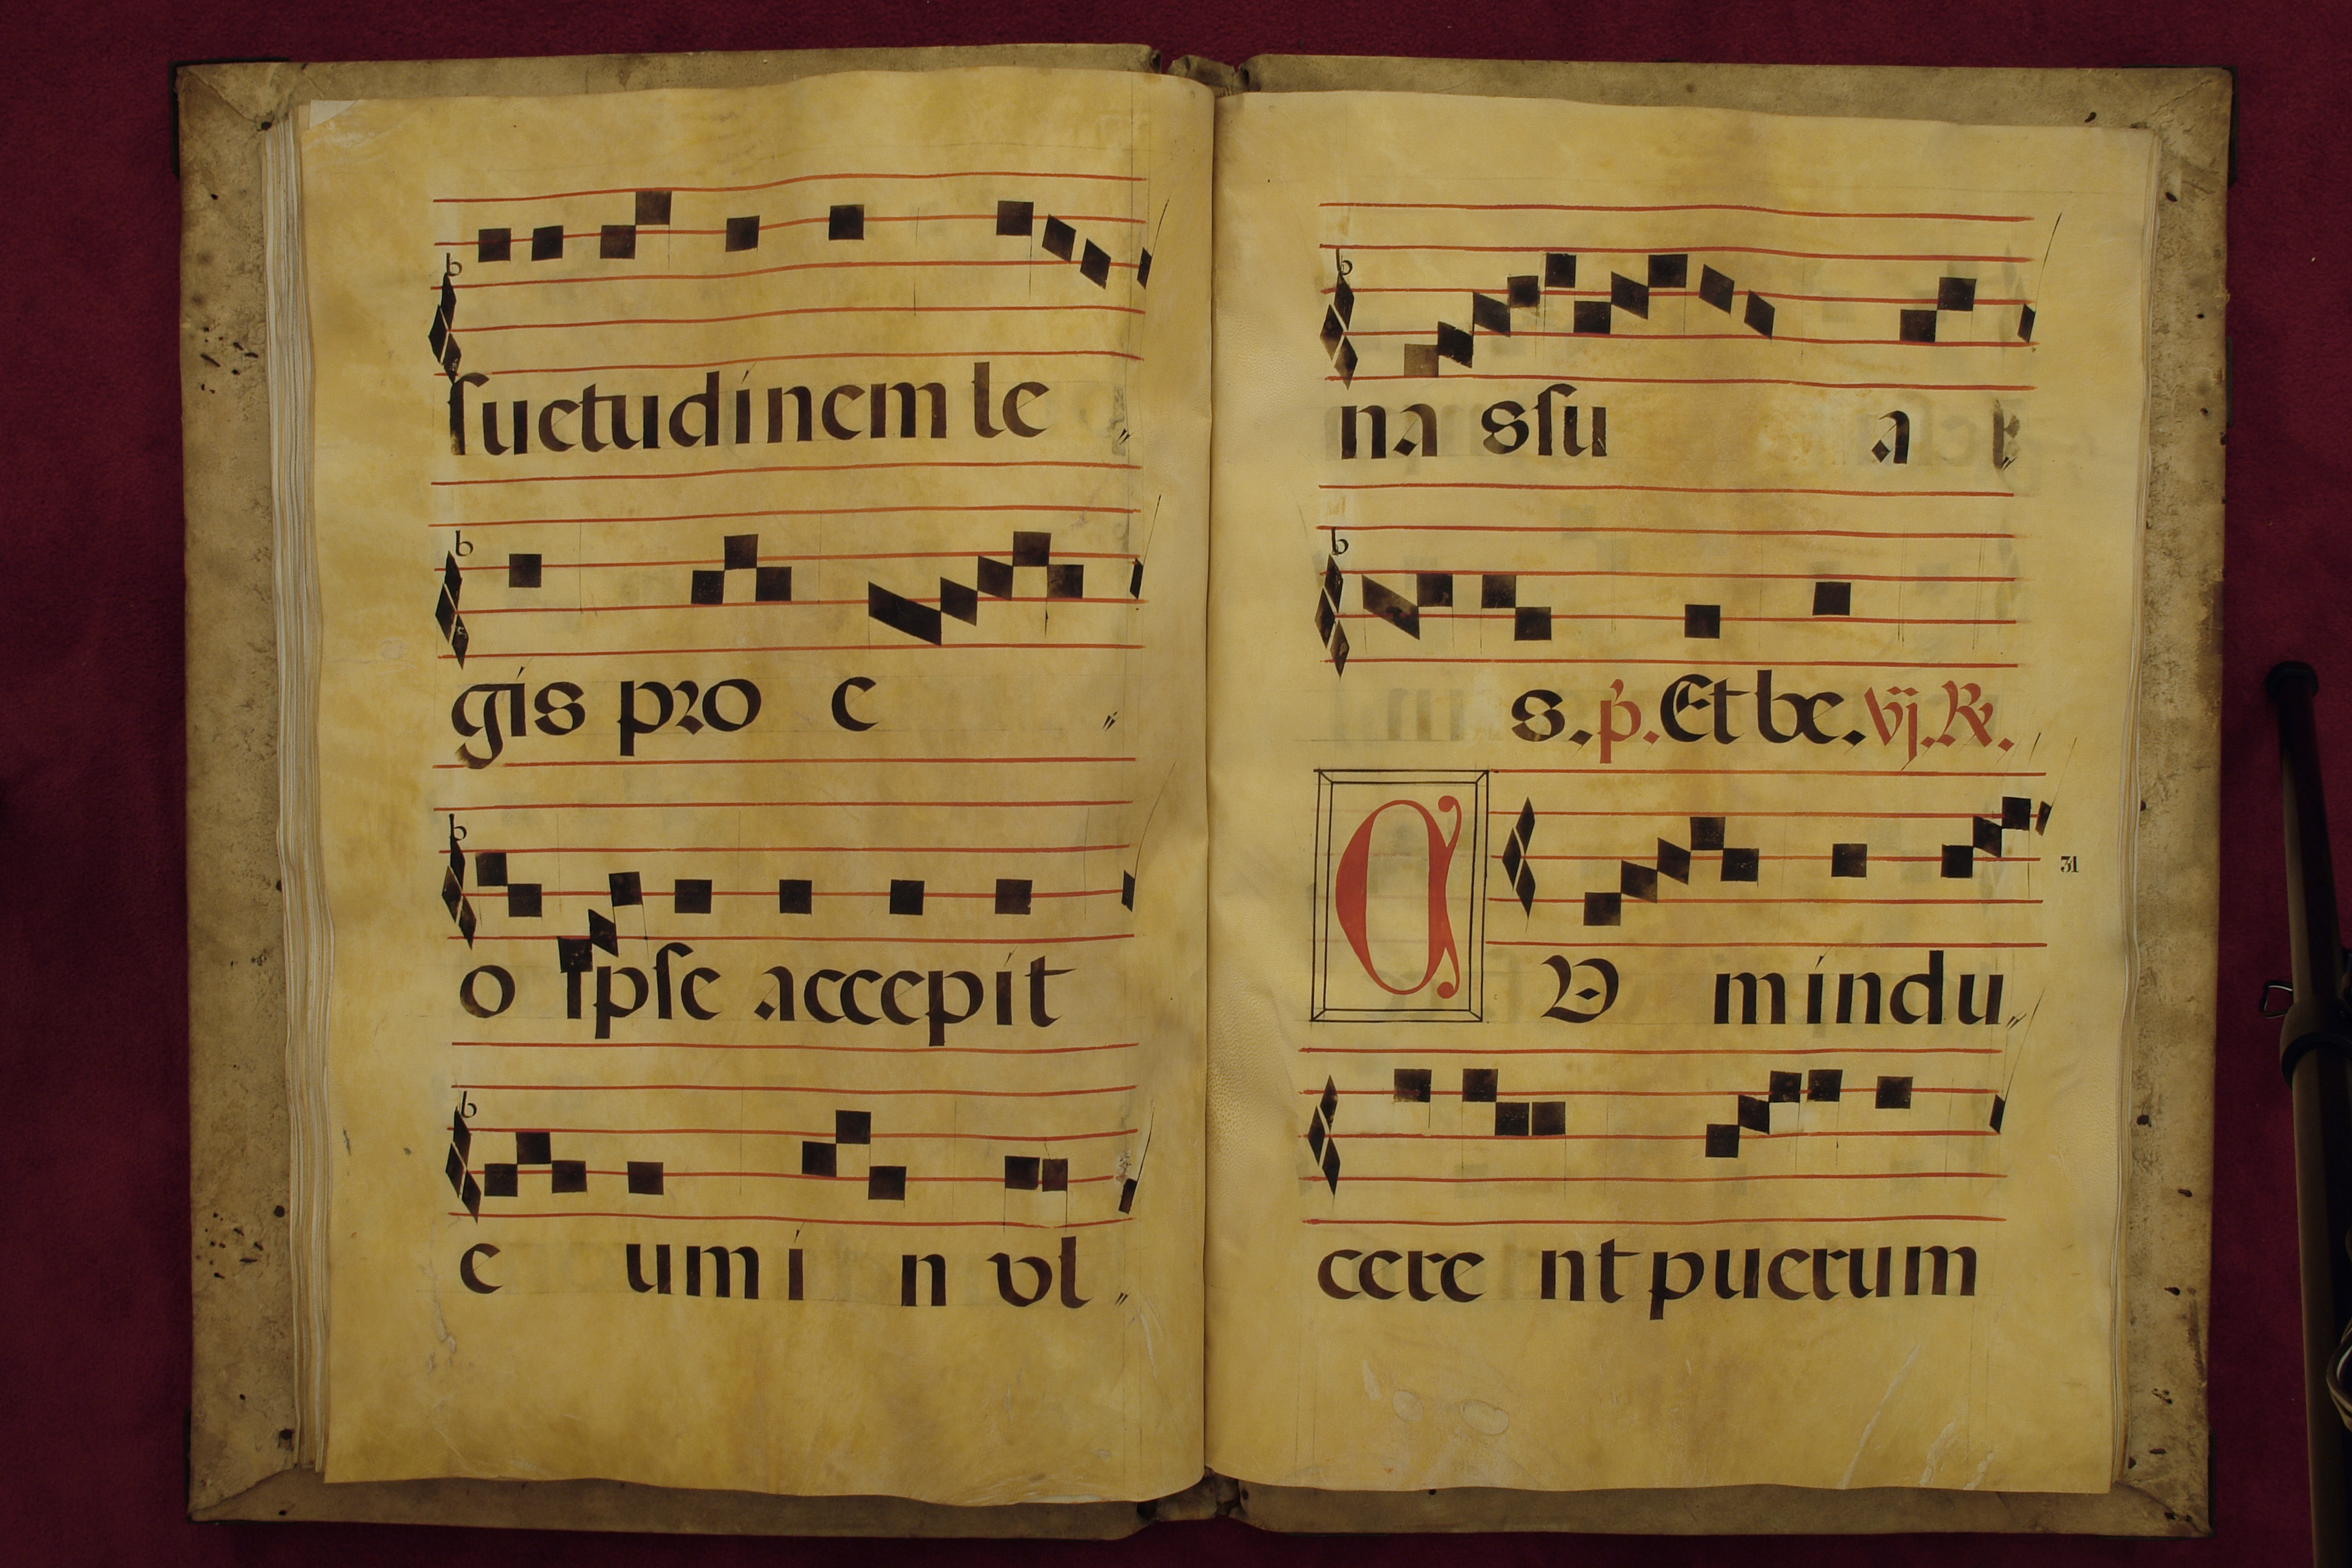 suetudinem le
gis pro e
o ipse accepit
e um i n vl
na ssu a
s. p. Et be. vij. R.
C V m indu
31
cere nt puerum